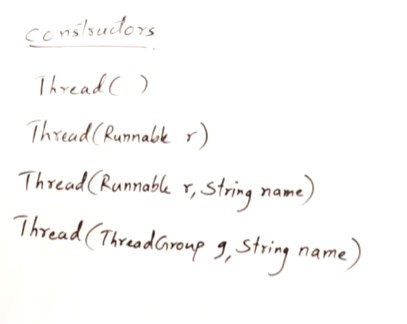 Constructors
Thread( )
Thread(Runnable r)
Thread(Runnable r, String name)
Thread(ThreadGroup g, String name)